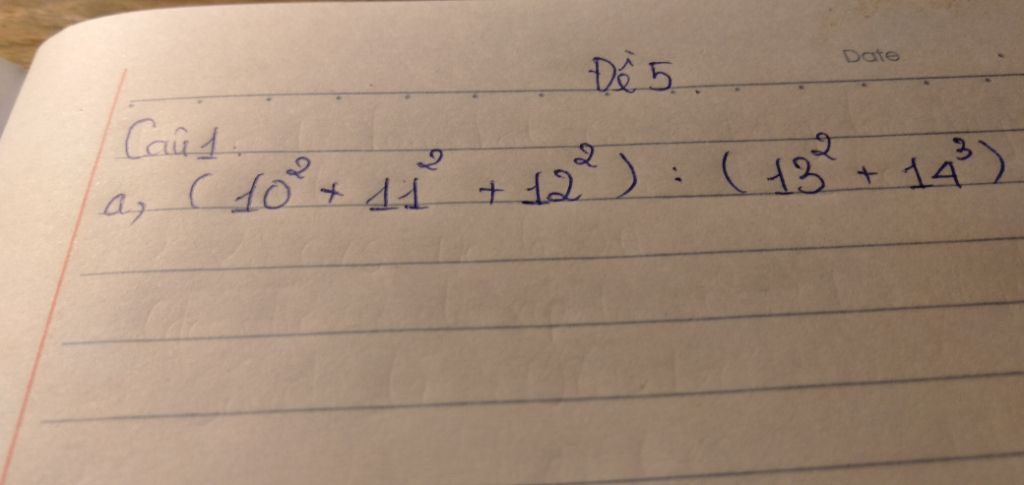 Date
Đề 5
Câu 1.
a, (10² + 11² + 12²) : (13² + 14³)